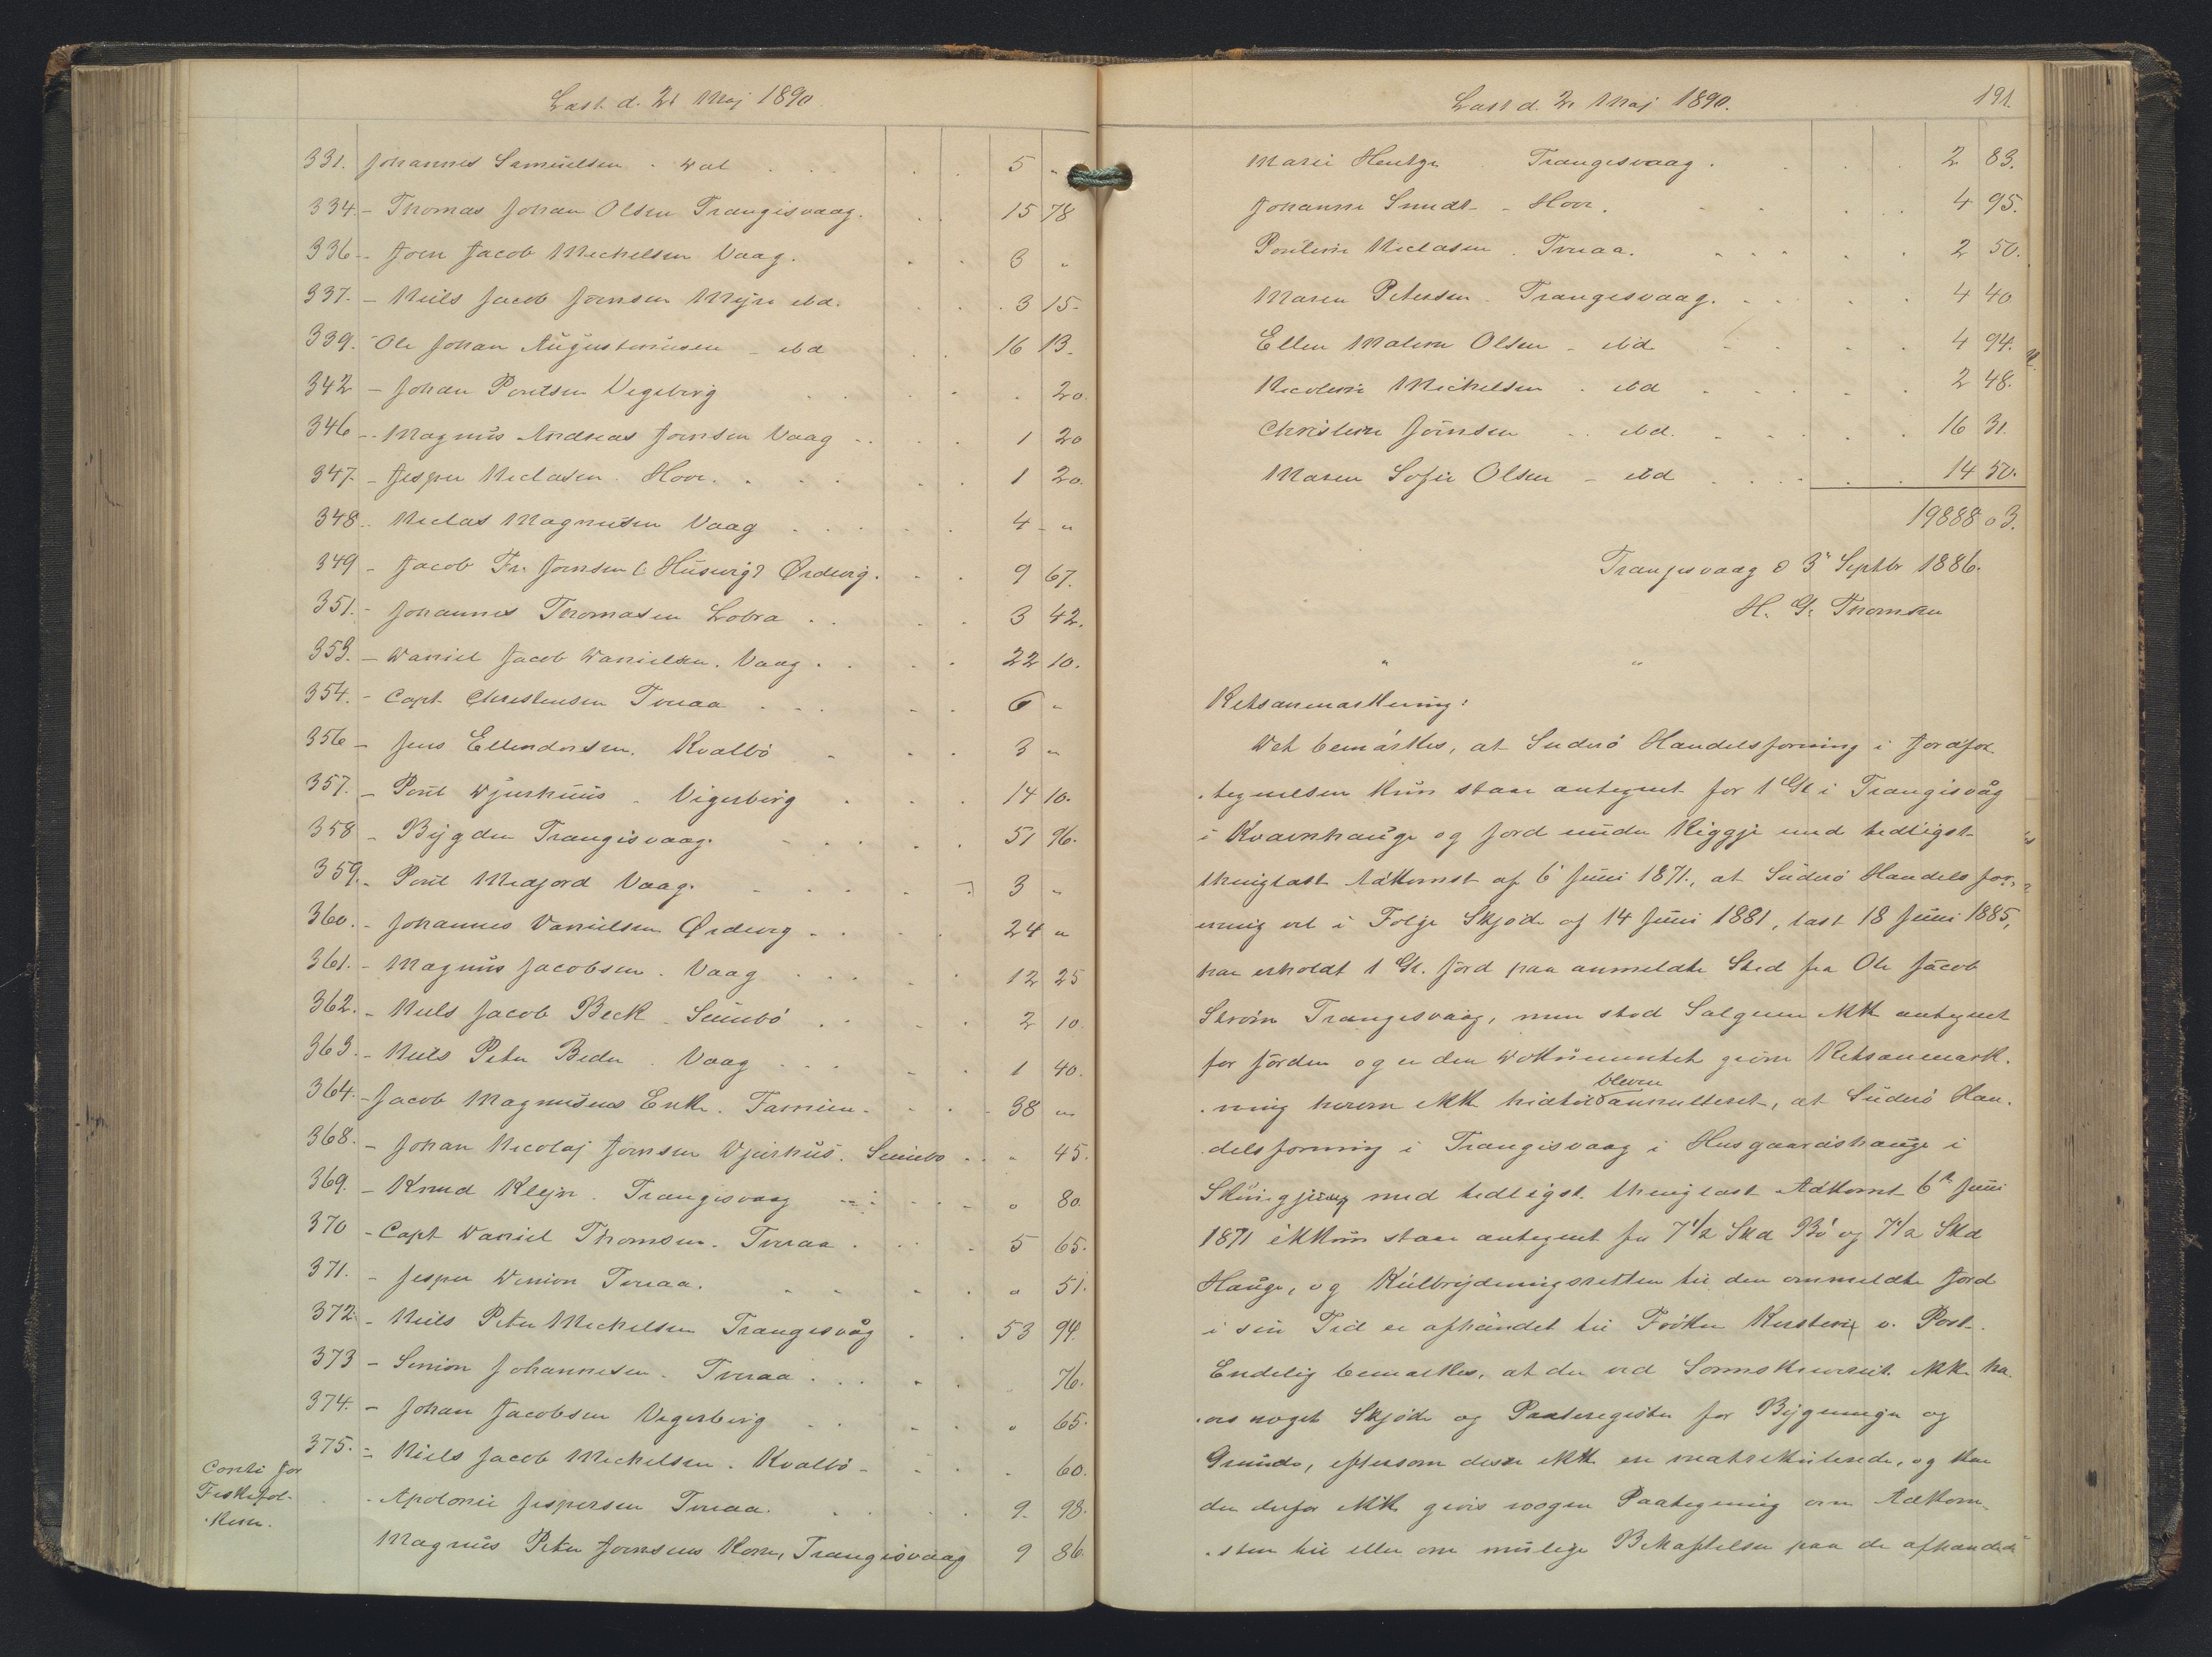 Læst d. 2i Maj 1890
331. Johannes Samuelsen - Wal 5 "
334 - Thomas Johan Olsen Trangisvaag. 15 78
336 - Joen Jacob Mickelsen Vaag. 3 "
337. - Niels Jacob Joensen Myre ibd. 3 15
339. - Ole Johan Augustinussen - ibd 16 13
342 - Johan Poulsen Vegeberg 20
346 - Magnus Andreas Joensen Vaag 1 20
347. - Jesper Niclasen. Hove. 1 20.
348. Niclas Magnusen Vaag 4 "
349 - Jacob Fr. Joensen (: Huswig? Ørdevig. 9 67.
351. - Johannes Thomasen Lobra 3 42.
353. - Daniel Jacob Danielsen. Vaag. 22 10.
354. - Capt. Christensen Tveraa 6 "
356 - Jens Ellendersen. Kvalbö 3 "
357. - Poul Djurhuus - Vigerberg 14 10.
358 - Bygden Trangisvaag. 51 96.
359. - Poul Midjord Vaag. 3 "
360. - Johannes Danielsen Ørdevig 24 "
361. - Magnus Jacobsen. Vaag 12 25
362. - Niels Jacob Beck - Sumbö 2 10
363. - Niels Peter Beder. Vaag 1 40.
364. - Jacob Magnusens Enke. Famien. 38 "
368. - Johan Nicolaj Joensen Djurhus. Sumbo " 45.
369. - Knud Klejn. Trangisvaag " 80.
370 - Capt Daniel Thomsen. Tveraa. 5 65.
371. - Jesper Simon Tveraa. " 51.
372. - Niels Peter Mickelsen Trangisvåg 53 94.
373 - Simon Johannesen. Tveraa 76.
374. - Johan Jacobsen Vegerberg " 65.
375. - Niels Jacob Mickelsen. Kvalbö 60.
Conti for
Fiskefol-
kene.
Apolonie Jespersen Tveraa. 9. 98.
Magnus Peter Joensens Kone, Trangisvaag 9 86
Læst d. 2i Maj 1890. 191.
Marie Hentze Trangisvaag. 2 83.
Johanne Smidt - Hove. 4 95.
Pouline Niclasen. Tveraa. 2 50.
Maren Petersen. Trangisvaag. 4 40
Ellen Malene Olsen - ibd 4 94.
Nicoline Mickelsen - ibd 2 48.
Christine Joensen - ibd. 16 31.
Maren Sofie Olsen - ibd 14 50.
19888 03.
Trangisvaag d 3' Septbr 1886.
H. G. Thomsen
" "
Retsanmærkning:
Det bemærkes, at Suderö Handelsforening i Jordfor
-tegnelsen kun staar antegnet for 1 Gl i Trangisvåg
i Kvarnhauge og Jord under Riggje med tidligst
thinglæst Adkomst af 6' Juni 1871., at Suderö Handelsfor-
ening vel i Følge Skjöde af 14 Juni 1881, læst 18 Juni 1885,
har erholdt 1 Gl. Jord paa anmeldte Sted fra Ole Jacob
Trangisvaag, men stod Sælgeren ikke antegnet
for Jorden og er den Dokumentet givne Retsanmærk-
-ning herom ikke hidtil bleven annulleret, at Suderö Han-
delsforening i Trangisvaag i Husgaardshauge i
med tidligst. thinglæst Adkomst 6te Juni
1871 ikkun staar antegnet for 7 1/2 Skd Bö og 7 1/2 Skd
Hauge, og Kulbrydningsretten til den anmeldte Jord
i sin Tid er afhændet til Fröken Kirstine v. Post.
Endelig bemærkes, at der ved Sorenskriveriet ikke ha-
-ves noget Skjöde og Panteregister for Bygninger og
Grunde, eftersom disse ikke ere matrikulerede, og kan
der derfor ikke gives nogen Paategning om Adkom-
-sten til eller om mulige Behæftelser paa de afhændede